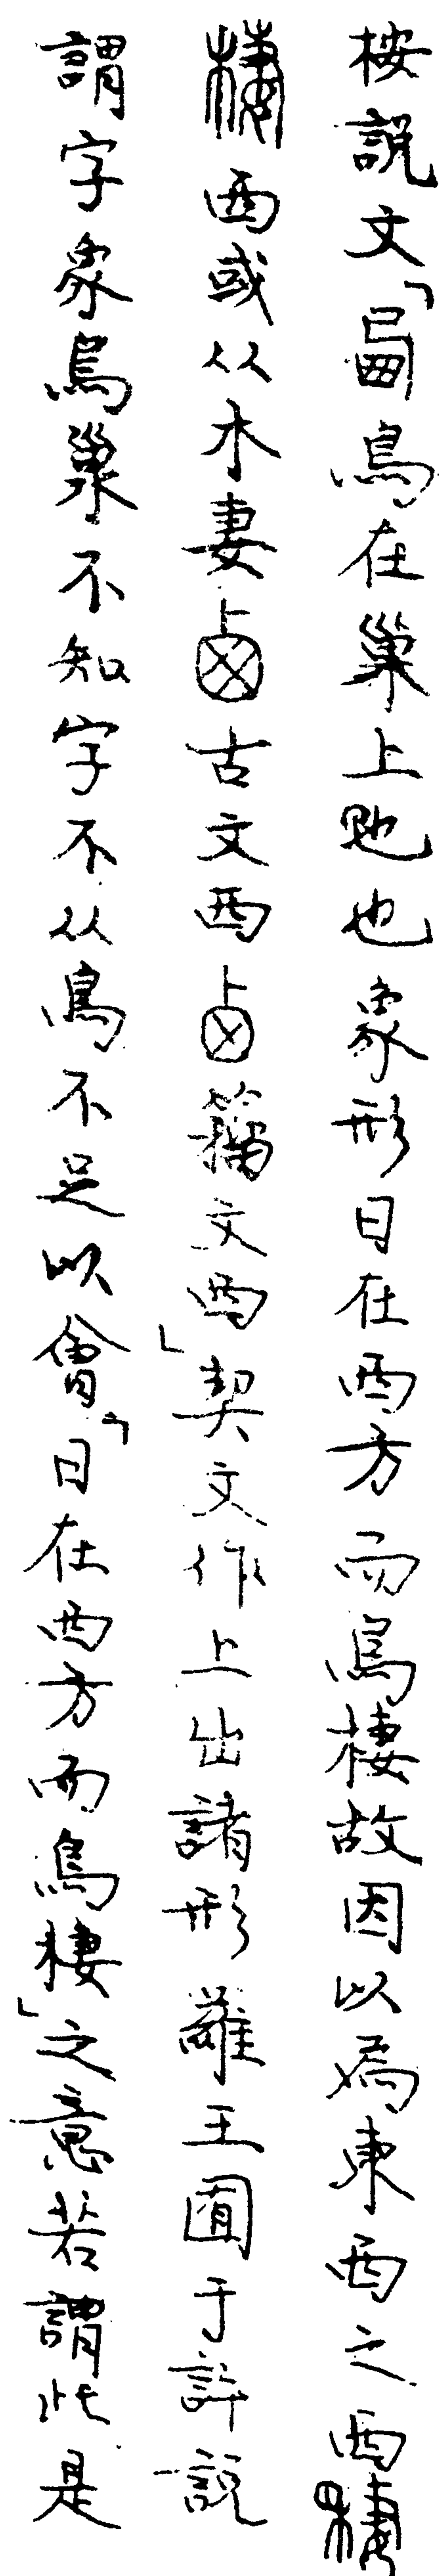 按說文「㢴鳥在巢上皃也象形日在西方而鳥棲故因以爲東西之西棲
西或从木妻古文西籀文西」契文作上出諸形羅王囿于許說
謂字象鳥巢不知字不从鳥不足以會「日在西方而鳥棲」之意若謂此是